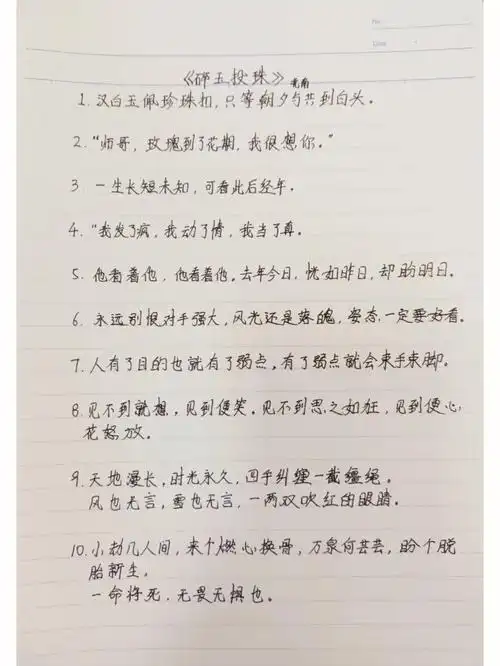 No.
Date
《碎玉投珠》北南
1. 汉白玉佩珍珠扣,只等朝夕与共到白头。
2. “师哥,玫瑰到了花期,我很想你。”
3 一生长短未知,可看此后经年。
4. “我发了疯,我动了情,我当了真。
5. 他看着他,他看着他。去年今日,恍如昨日,却盼明日。
6. 永远别恨对手强大,风光还是落魄,姿态一定要好看。
7. 人有了目的也就有了弱点,有了弱点就会束手束脚。
8. 见不到就想,见到便笑。见不到思之如狂,见到便心
花怒放。
9. 天地漫长,时光永久,四手纠缠一截缰绳。
风也无言,雪也无言,一两双吹红的眼睛。
10. 小劫几人间,来个燃心换骨,万象何芸芸,盼个脱
胎新生。
一命将死,无畏无惧也。